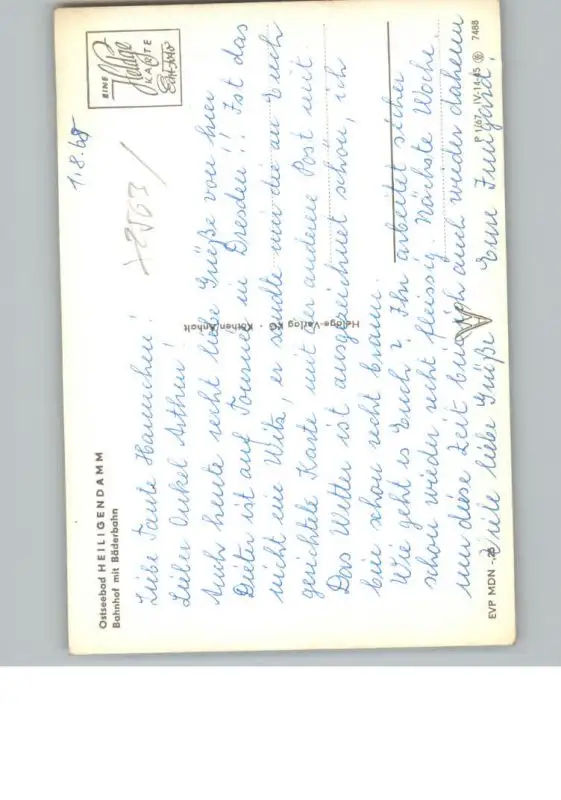 Ostseebad HEILIGENDAMM
Bahnhof mit Bäderbahn
1.8.68
EINE
Heldge
KARTE
Echt Foto
Liebe Tante Hannchen!
Lieber Onkel Arthur!
Auch heute recht liebe Grüße von hier
Dieter ist auf Tournée in Dresden!! Ist das
nicht ein Witz, er sandte mir die an Euch
gerichtete Karte mit der anderen Post mit.
Das Wetter ist ausgezeichnet schön, ich
bin schon recht braun.
Wie geht es Euch? Ihr arbeitet sicher
schon wieder recht fleissig. Nächste Woche
um diese Zeit bin ich auch wieder daheim
Viele liebe Grüße Eure Irmgard!
Heldge-Verlag KG · Köthen-Anhalt
EVP MDN -,25
P 1/67 IV-14-45 7488